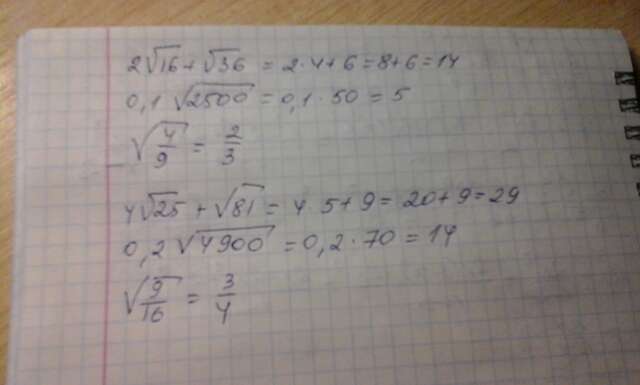 2√16 + √36 = 2·4+6=8+6=14
0,1 √2500 = 0,1·50 = 5
√4/9 = 2/3
4√25 + √81 = 4·5+9=20+9=29
0,2 √4900 = 0,2·70 = 14
√9/16 = 3/4